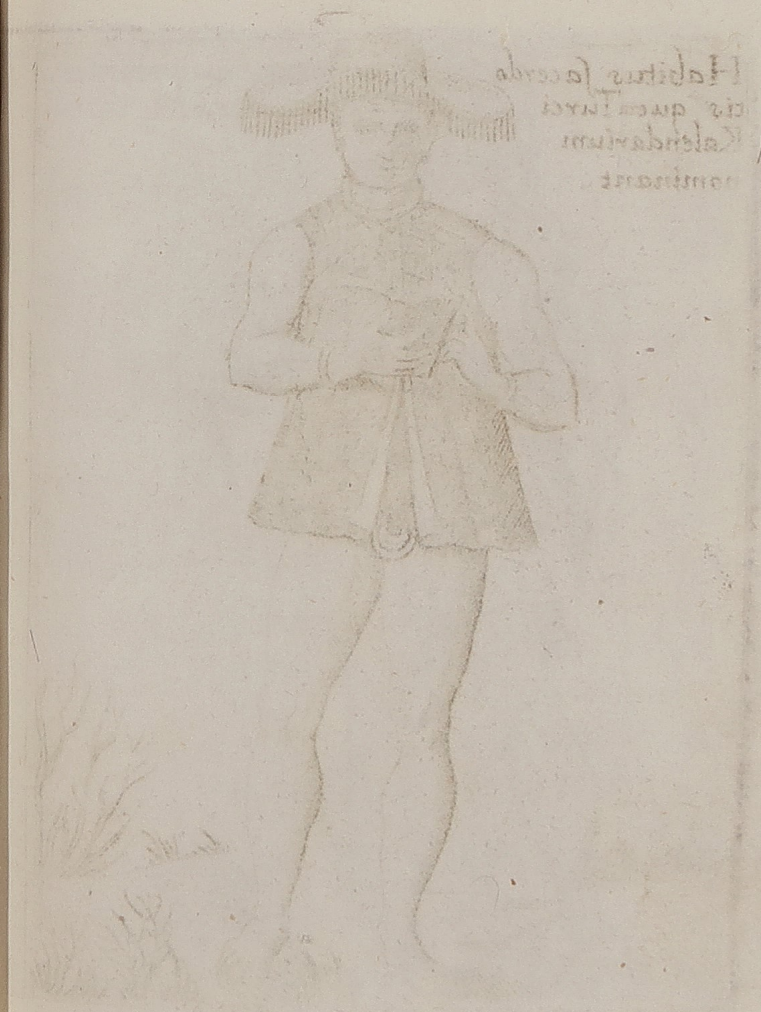 Habitus sacerdo
tis quem Turci
Kalendarium
nominant